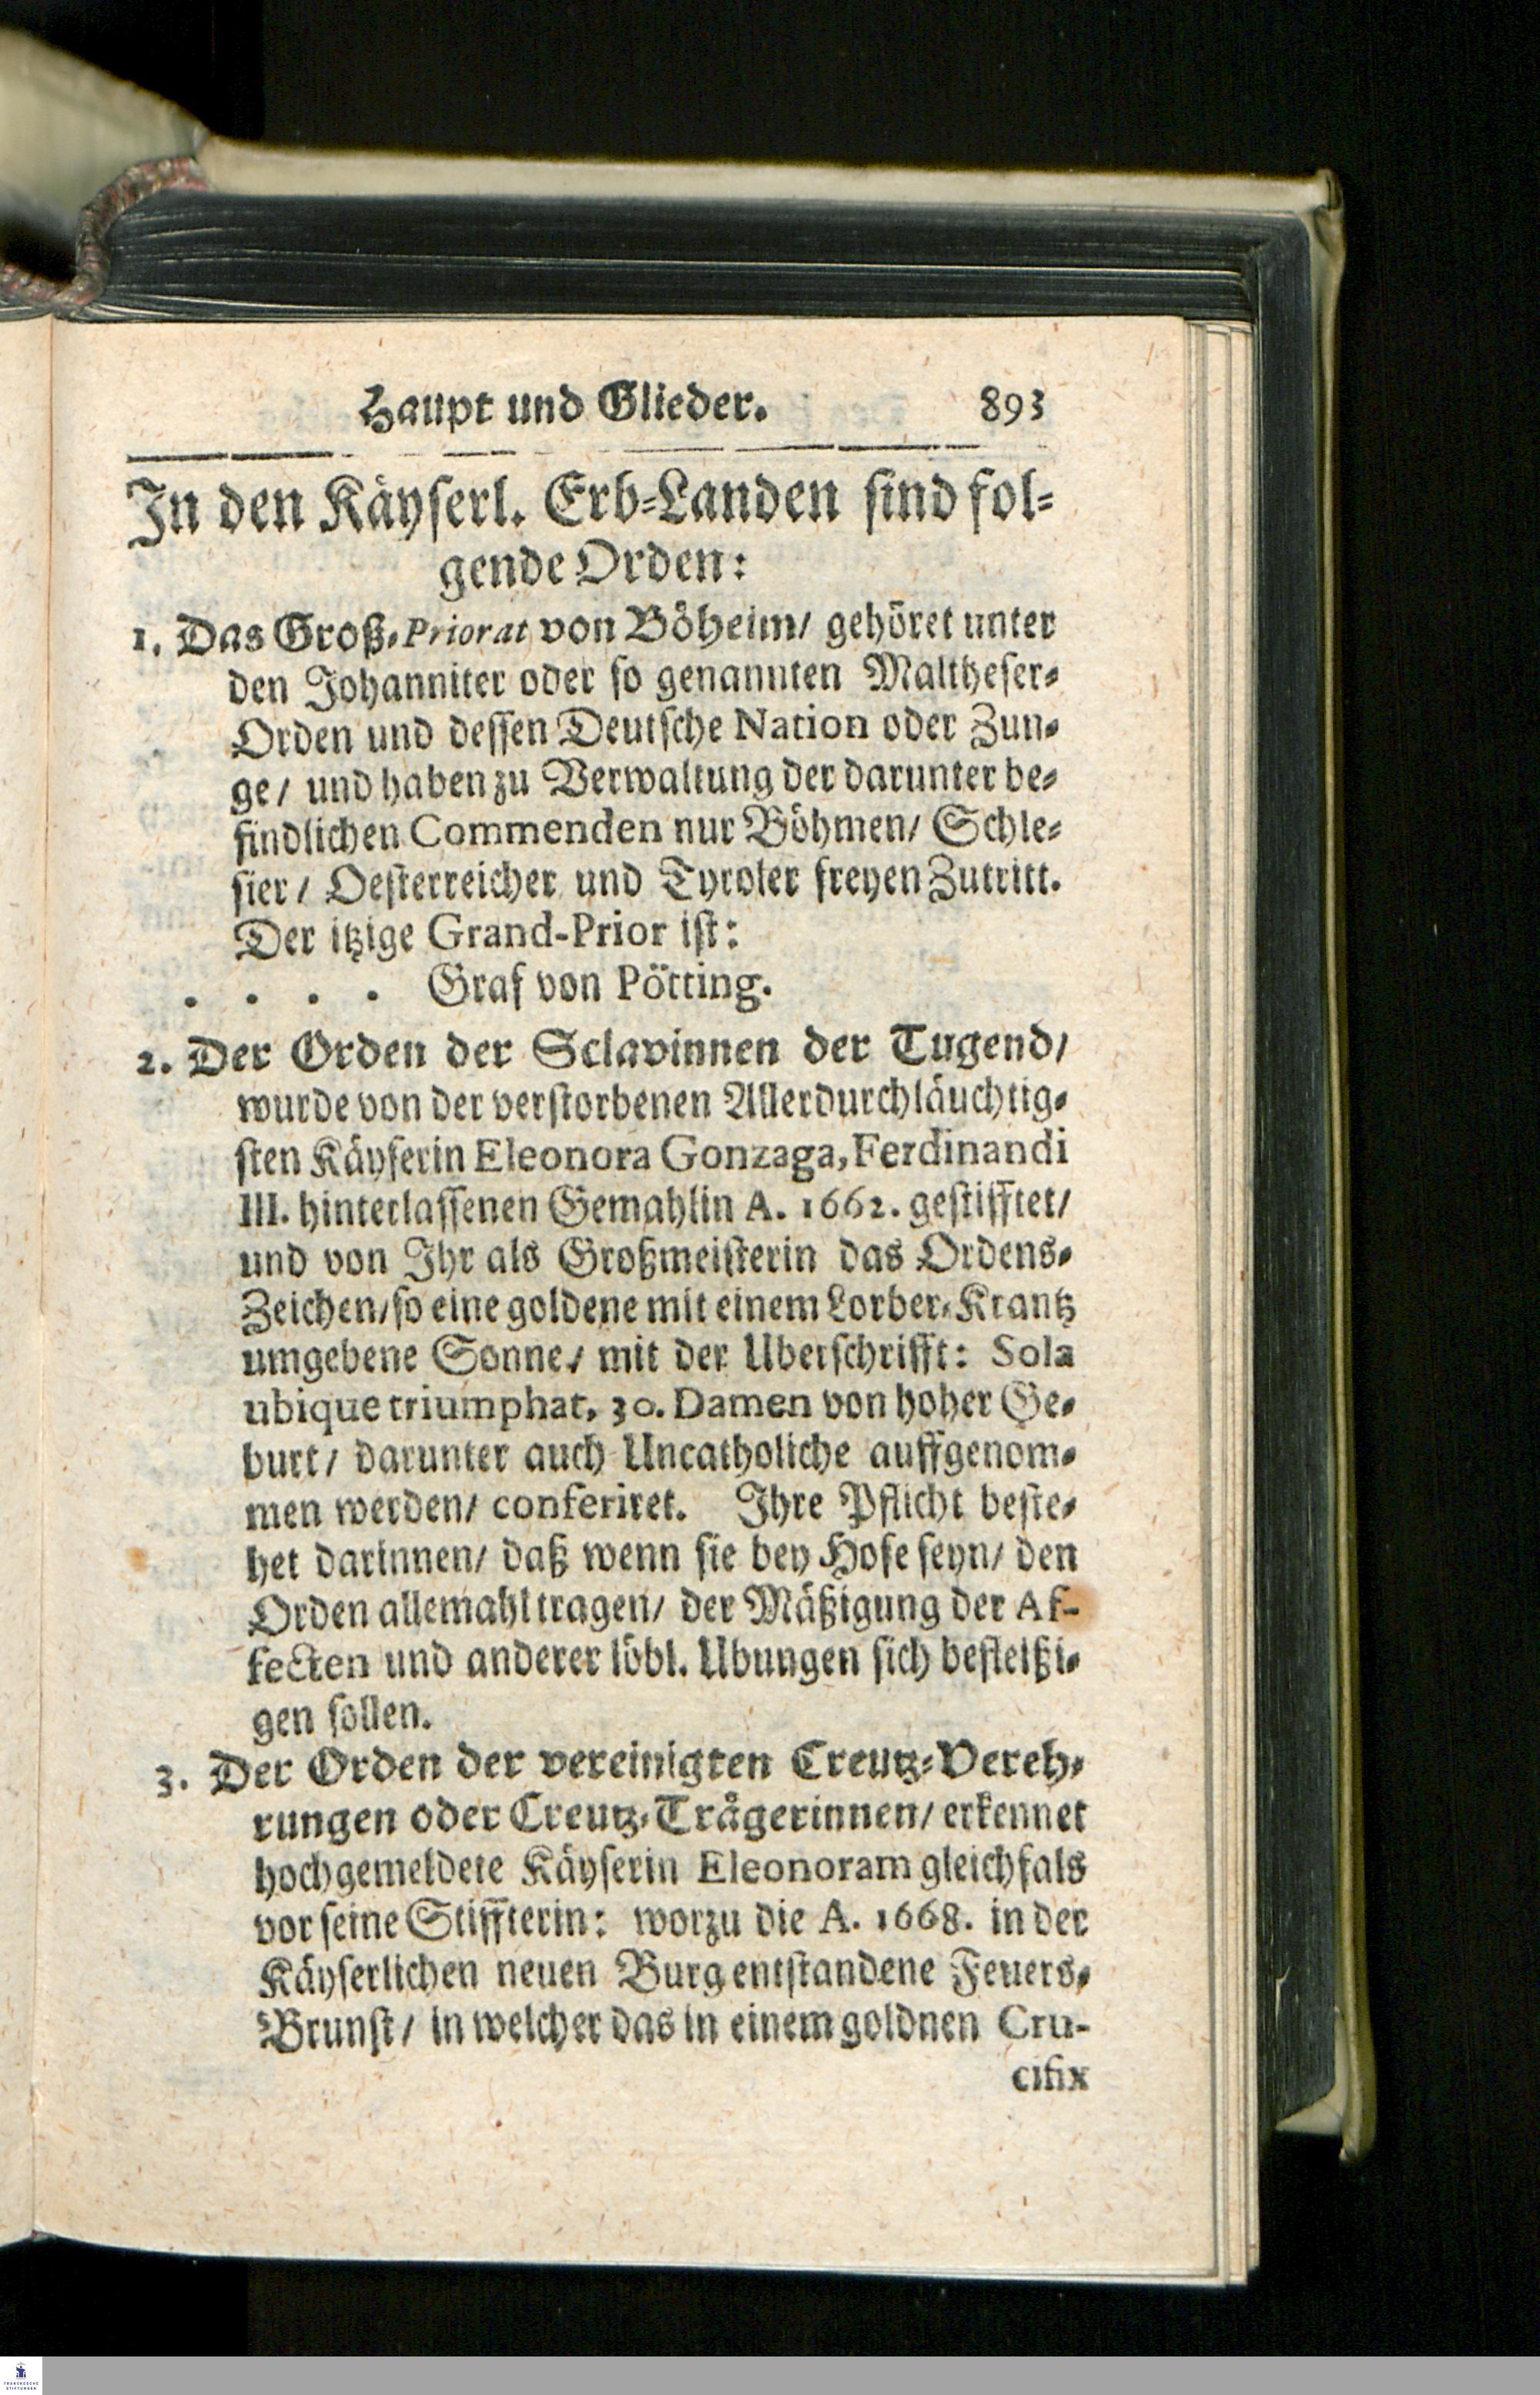 Haupt und Glieder. 893
In den Käyserl. Erb-Landen sind fol-
gende Orden:
1. Das Groß-Priorat von Böheim/ gehöret unter
den Johanniter oder so genannten Maltheser-
Orden und dessen Deutsche Nation oder Zun-
ge/ und haben zu Verwaltung der darunter be-
findlichen Commenden nur Böhmen/ Schle-
sier/ Oesterreicher und Tyroler freyen Zutritt.
Der itzige Grand-Prior ist:
. . . . Graf von Pötting.
2. Der Orden der Sclavinnen der Tugend/
wurde von der verstorbenen Allerdurchläuchtig-
sten Käyserin Eleonora Gonzaga, Ferdinandi
III. hinterlassenen Gemahlin A. 1662. gestifftet/
und von Ihr als Großmeisterin das Ordens-
Zeichen/ so eine goldene mit einem Lorber-Krantz
umgebene Sonne/ mit der Uberschrifft: Sola
ubique triumphat, 30. Damen von hoher Ge-
burt/ darunter auch Uncatholiche auffgenom-
men werden/ conferiret. Ihre Pflicht beste-
het darinnen/ daß wenn sie bey Hofe seyn/ den
Orden allemahl tragen/ der Mäßigung der Af-
fecten und anderer löbl. Ubungen sich befleißi-
gen sollen.
3. Der Orden der vereinigten Creutz-Vereh-
rungen oder Creutz-Trägerinnen/ erkennet
hochgemeldete Käyserin Eleonoram gleichfals
vor seine Stiffterin: worzu die A. 1668. in der
Käyserlichen neuen Burg entstandene Feuers-
Brunst/ in welcher das in einem goldnen Cru-
cifix
FRANCKESCHE
STIFTUNGEN